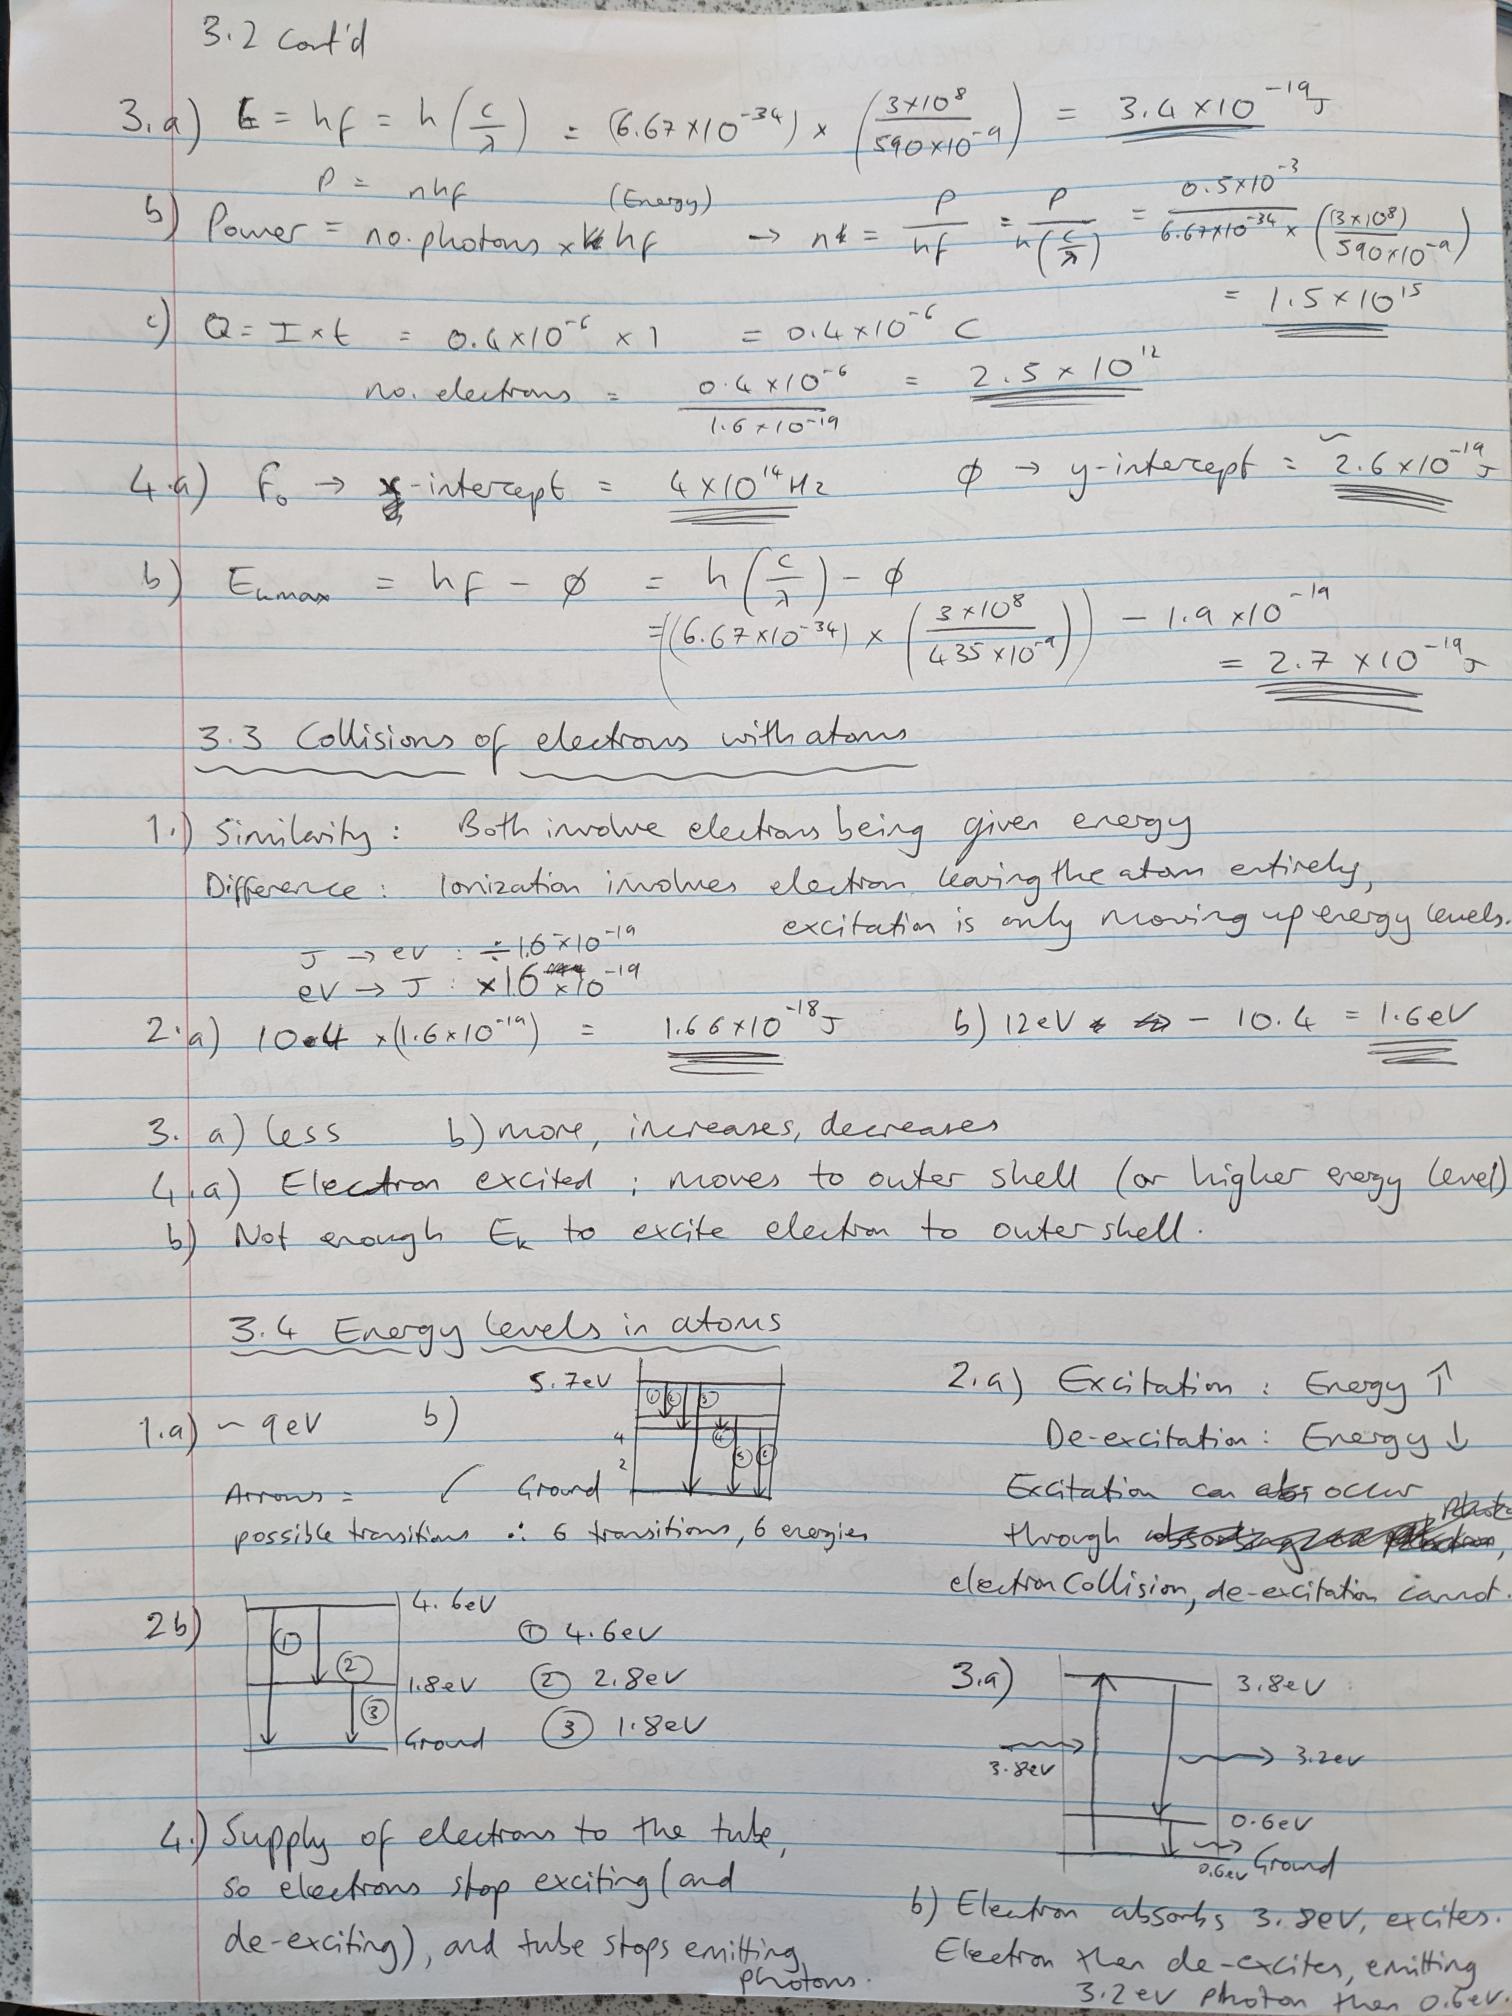 3.2 Cont'd
3.a) E = hf = h (c/λ) = (6.67 × 10^-34) × (3×10^8 / 590×10^-9) = 3.4 × 10^-19 J
P = nhf (Energy)
b) Power = no. photons × hf → n = P/hf = P/h(c/λ) = 0.5×10^-3 / 6.67×10^-34 × ((3×10^8) / 590×10^-9)
= 1.5 × 10^15
c) Q = I × t = 0.4×10^-6 × 1 = 0.4×10^-6 C
no. electrons = 0.4 × 10^-6 / 1.6 × 10^-19 = 2.5 × 10^12
4.a) f₀ → x-intercept = 4 × 10^14 Hz φ → y-intercept = ~2.6 × 10^-19 J
b) Ekmax = hf - φ = h (c/λ) - φ
= ((6.67×10^-34) × (3×10^8 / 435×10^-9)) - 1.9 × 10^-19
= 2.7 × 10^-19 J
3.3 Collisions of electrons with atoms
1.) Similarity: Both involve electrons being given energy
Difference: Ionization involves electron leaving the atom entirely,
excitation is only moving up energy levels.
J → eV : ÷1.6×10^-19
eV → J : ×1.6 ×10^-19
2.a) 10.4 × (1.6×10^-19) = 1.66×10^-18 J b) 12eV - 10.4 = 1.6eV
3. a) less b) more, increases, decreases
4.a) Electron excited ; moves to outer shell (or higher energy level)
b) Not enough Ek to excite electron to outer shell.
3.4 Energy levels in atoms
1.a) ~ 9eV b)
5.7eV
① ② ③
4
④
2
⑤ ⑥
Ground
Arrows =
possible transitions ∴ 6 transitions, 6 energies
2.a) Excitation : Energy ↑
De-excitation : Energy ↓
Excitation can also occur
through
electron collision, de-excitation cannot.
2b)
4.6eV
①
②
1.8eV
③
Ground
① 4.6eV
② 2.8eV
③ 1.8eV
3.a)
3.8eV
3.8eV
3.2eV
0.6eV
0.6eV
Ground
4.) Supply of electrons to the tube,
so electrons stop exciting (and
de-exciting), and tube stops emitting
photons.
b) Electron absorbs 3.8eV, excites.
Electron then de-excites, emitting
3.2eV photon then 0.6eV